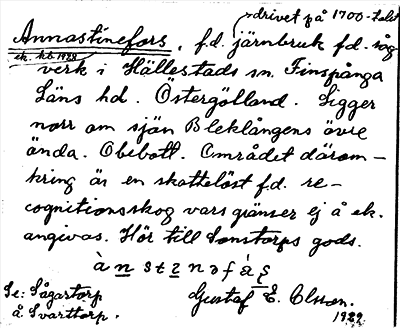 drivet på 1700-talet
Annastinefors, f.d. järnbruk f.d. såg
ek. kt. 1929
verk i Hällestads sn. Finspånga
Läns hd. Östergötland. Ligger
norr om sjön Bleklångens övre
ända. Obebott. Området därom-
kring är en skattelöst f.d. re-
cognitionsskog vars gränser ej å ek.
angivas. Hör till Sonstorps gods.
Se: Sågartorp
Gustaf E. Olsson.
å. Svarttorp.
1929.